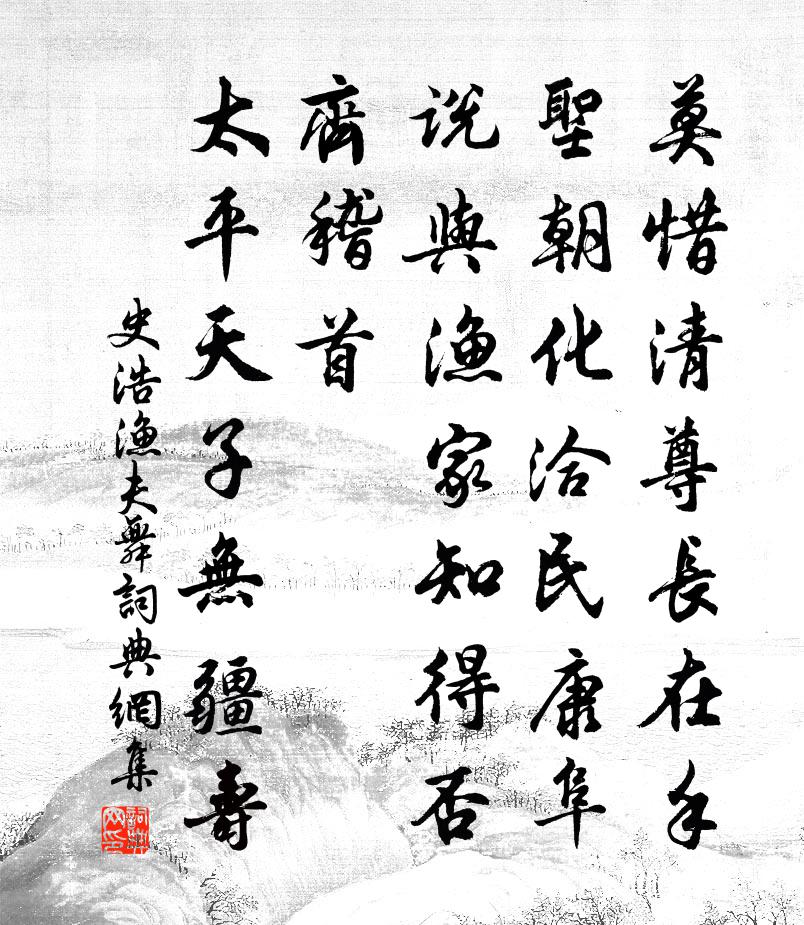 莫惜清尊長在手
聖朝化洽民康阜
說與漁家知得否
齊稽首
太平天子無疆壽
史浩漁夫舞詞典網集
詞典網印